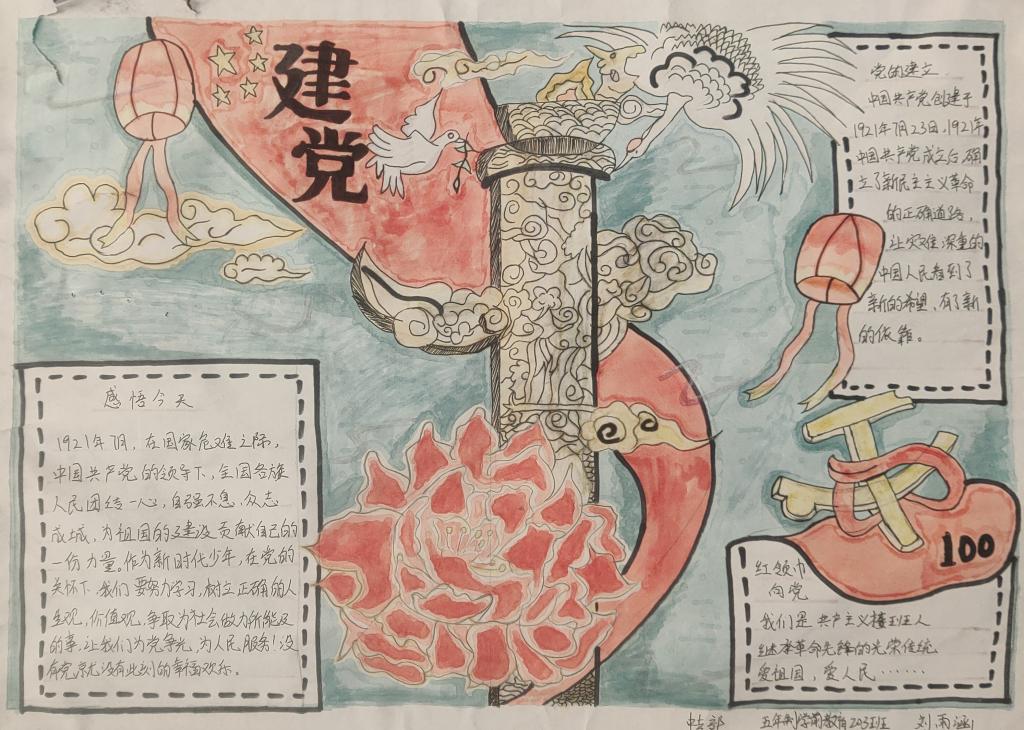 建党
党的建立
中国共产党创建于
1921年7月23日,1921年
中国共产党成立后,确
立了新民主主义革命
的正确道路,
让灾难深重的
中国人民看到了
新的希望,有了新
的依靠。
感悟今天
1921年7月,在国家危难之际,
中国共产党的领导下,全国各族
人民团结一心,自强不息,众志
成城,为祖国的建设贡献自己的
一份力量。作为新时代少年,在党的
关怀下,我们要努力学习,树立正确的人
生观,价值观,争取为社会做力所能及
的事,让我们为党争光,为人民服务!没
有党就没有此刻的幸福欢乐。
100
红领巾
向党
我们是共产主义接班人
继承革命先锋的光荣传统
爱祖国,爱人民……
中专部 五年制学前教育203班 刘雨涵